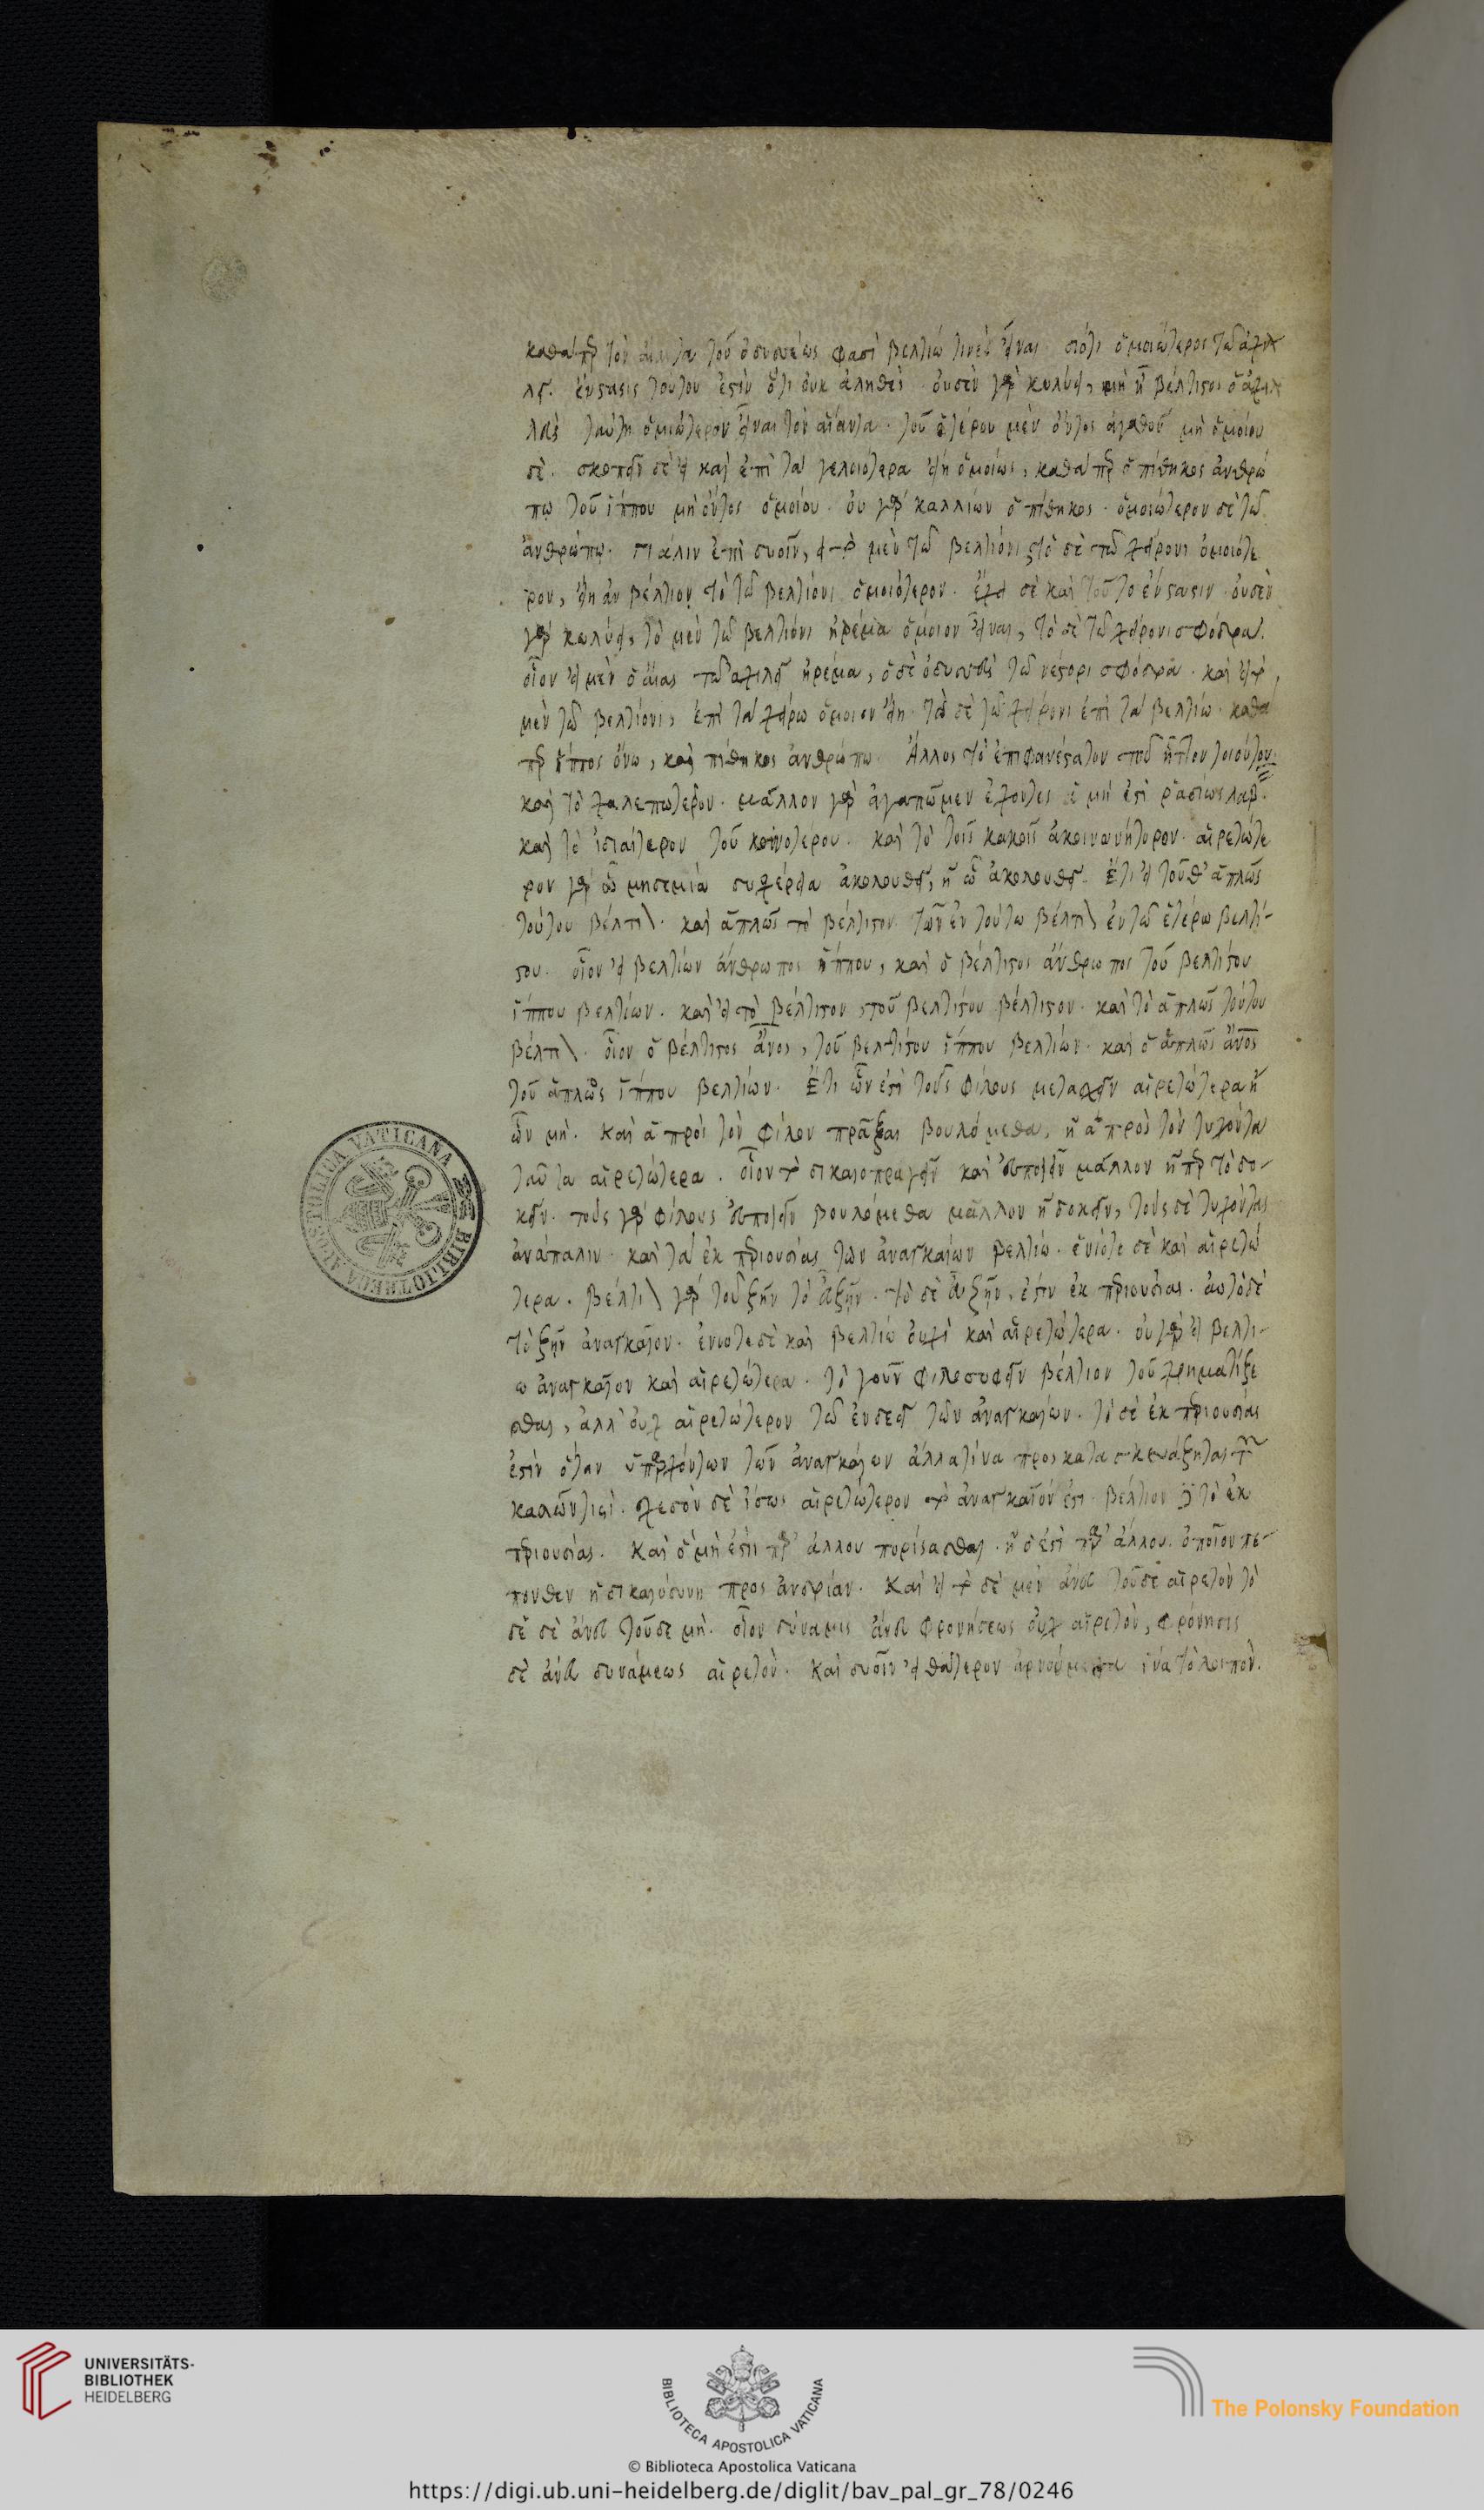 καθάπερ τὸν αἴαντα τοῦ ὀδυσσέως φασὶ βελτίω τινὲς εἶναι διότι ὁμοιότερος τῶ ἀχιλ
λεῖ. ἔνστασις τούτου ἐστὶν ὅτι οὐκ ἀληθὲς. οὐδὲν γὰρ κωλύει, μὴ ἧ βέλτιστος ὁ ἀχιλ
λεὺς ταύτη ὁμοιότερον εἶναι τὸν αἴαντα. τοῦ ἑτέρου μὲν ὄντος ἀγαθοῦ μὴ ὁμοίου
δὲ. σκοπεῖν δὲ εἰ καὶ ἐπὶ τὰ γελοιότερα εἴη ὅμοιος, καθάπερ ὁ πίθηκος ἀνθρώ
πω τοῦ ἵππου μὴ ὄντος ὁμοίου. οὐ γὰρ κάλλιον ὁ πίθηκος. ὁμοιότερον δὲ τῶ
ἀνθρώπω. πάλιν ἐπὶ δυοῖν, εἰ τὸ μὲν τῶ βελτίονι τὸ δὲ τῶ χείρονι ὁμοιότε
ρον, εἴη ἂν βέλτιον τὸ τῶ βελτίονι ὁμοιότερον. ἔχει δὲ καὶ τοῦτο ἔνστασιν. οὐδὲν
γὰρ κωλύει, τὸ μὲν τῶ βελτίονι ἠρέμα ὅμοιον εἶναι, τὸ δὲ τῶ χείρονι σφόδρα.
οἷον εἰ μὲν ὁ αἴας τῶ ἀχιλεῖ ἠρέμα, ὁ δὲ ὀδυσσεὺς τῶ νέστορι σφόδρα. καὶ εἰ τὸ
μὲν τῶ βελτίονι, ἐπὶ τὰ χείρω ὅμοιον εἴη τὸ δὲ τῶ χείρονι ἐπὶ τὰ βελτίω. καθά
περ ἵππος ὄνω, καὶ πίθηκος ἀνθρώπω. Ἄλλος τὸ ἐπιφανέστατον τοῦ ἧττον τοιούτου.
καὶ τὸ χαλεπώτερον. μᾶλλον γὰρ ἀγαπῶμεν ἔχοντες ἃ μὴ ἐστὶ ῥαδίως λαβ.
καὶ τὸ ἰδιαίτερον τοῦ κοινοτέρου. καὶ τὸ τοῖς κακοῖς ἀκοινωνήτορον. αἱρετώτε
ρον γὰρ ὧ μηδεμία δυχέρεια ἀκολουθεῖ, ἢ ὧ ἀκολουθεῖ. Ἔτι εἰ τοῦθ' ἁπλῶς
τούτου βέλτι\. καὶ ἁπλῶς τὸ βέλτιστον τῶν ἐν τούτω βέλτι\ ἐν τῶ ἑτέρω βελτί-
στου. οἷον εἰ βελτίων ἄνθρωπος ἵππου, καὶ ὁ βέλτιστος ἄνθρωπος τοῦ βελτίστου
ἵππου βελτίων. καὶ εἰ τὸ βέλτιστον, τοῦ βελτίστου βέλτιστον. καὶ τὸ ἁπλῶς τούτου
βέλτι\. οἷον ὁ βέλτιστος ἄνος, τοῦ βελτίστου ἵππου βελτίων. καὶ ὁ ἁπλῶς ἄνος
τοῦ ἁπλῶς ἵππου βελτίων. Ἔτι ὧν ἐστὶ τοὺς φίλους μετασχεῖν αἱρετώτερα ἢ
ὧν μὴ. Καὶ ἃ πρὸς τὸν φίλον πρᾶξαι βουλόμεθα, ἢ ἃ πρὸς τὸν τυχόντα
ταῦτα αἱρετώτερα. οἷον τὸ δικαιοπραγεῖν καὶ εὐποιεῖν μᾶλλον ἤπερ τὸ δο-
κεῖν. τοὺς γὰρ φίλους εὐποιεῖν βουλόμεθα μᾶλλον ἢ δοκεῖν, τοὺς δὲ τυχόντας
ἀνάπαλιν. καὶ τὰ ἐκ περιουσίας τῶν ἀναγκαίων βελτίω. ἐνίοτε δὲ καὶ αἱρετώ
τερα. βέλτι\ γὰρ τοῦ ζῆν τὸ εὖ ζῆν. τὸ δὲ εὖ ζῆν, ἐστὶν ἐκ περιουσίας. αὐτὸ δὲ
τὸ ζῆν ἀναγκαῖον. ἐνίοτε δὲ καὶ βελτίω οὐχὶ καὶ αἱρετώτερα. οὐ γὰρ εἰ βελτί-
ω ἀναγκαῖον καὶ αἱρετώτερα. τὸ γοῦν φιλοσοφεῖν βέλτιον τοῦ χρηματίζε
σθαι, ἀλλ' οὐχ αἱρετώτερον τῶ ἐνδεεῖ τῶν ἀναγκαίων. τὸ δὲ ἐκ περιουσίας
ἐστὶν ὅταν ὑπαρχόντων τῶν ἀναγκαίων ἄλλα τινα προσκατασκευάζηται τῶν
καλῶν τις. σχεδὸν δὲ ἴσως αἱρετώτερον τὸ ἀναγκαῖόν ἐστι βέλτιον δὲ τὸ ἐκ
περιουσίας. Καὶ ὃ μὴ ἐστι παρ' ἄλλου πορίσασθαι. ἢ ὃ ἐστὶ παρ' ἄλλου. ὁποῖον πέ-
πονθεν ἡ δικαιοσύνη πρὸς ἀνδρίαν. Καὶ εἰ τὸ δὲ μὲν ἄνευ τοῦδε αἱρετὸν τὸ
δὲ δὲ ἄνευ τοῦδε μὴ. οἷον δύναμις ἄνευ φρονήσεως οὐχ αἱρετὸν, φρόνησις
δὲ ἄνευ δυνάμεως αἱρετὸν. Καὶ δυοῖν εἰ θάτερον ἀρνούμεθα ἵνα τὸ λοιπὸν.
BIBLIOTECA APOSTOLICA VATICANA
UNIVERSITÄTS-
BIBLIOTHEK
HEIDELBERG
BIBLIOTECA APOSTOLICA VATICANA
The Polonsky Foundation
© Biblioteca Apostolica Vaticana
https://digi.ub.uni-heidelberg.de/diglit/bav_pal_gr_78/0246